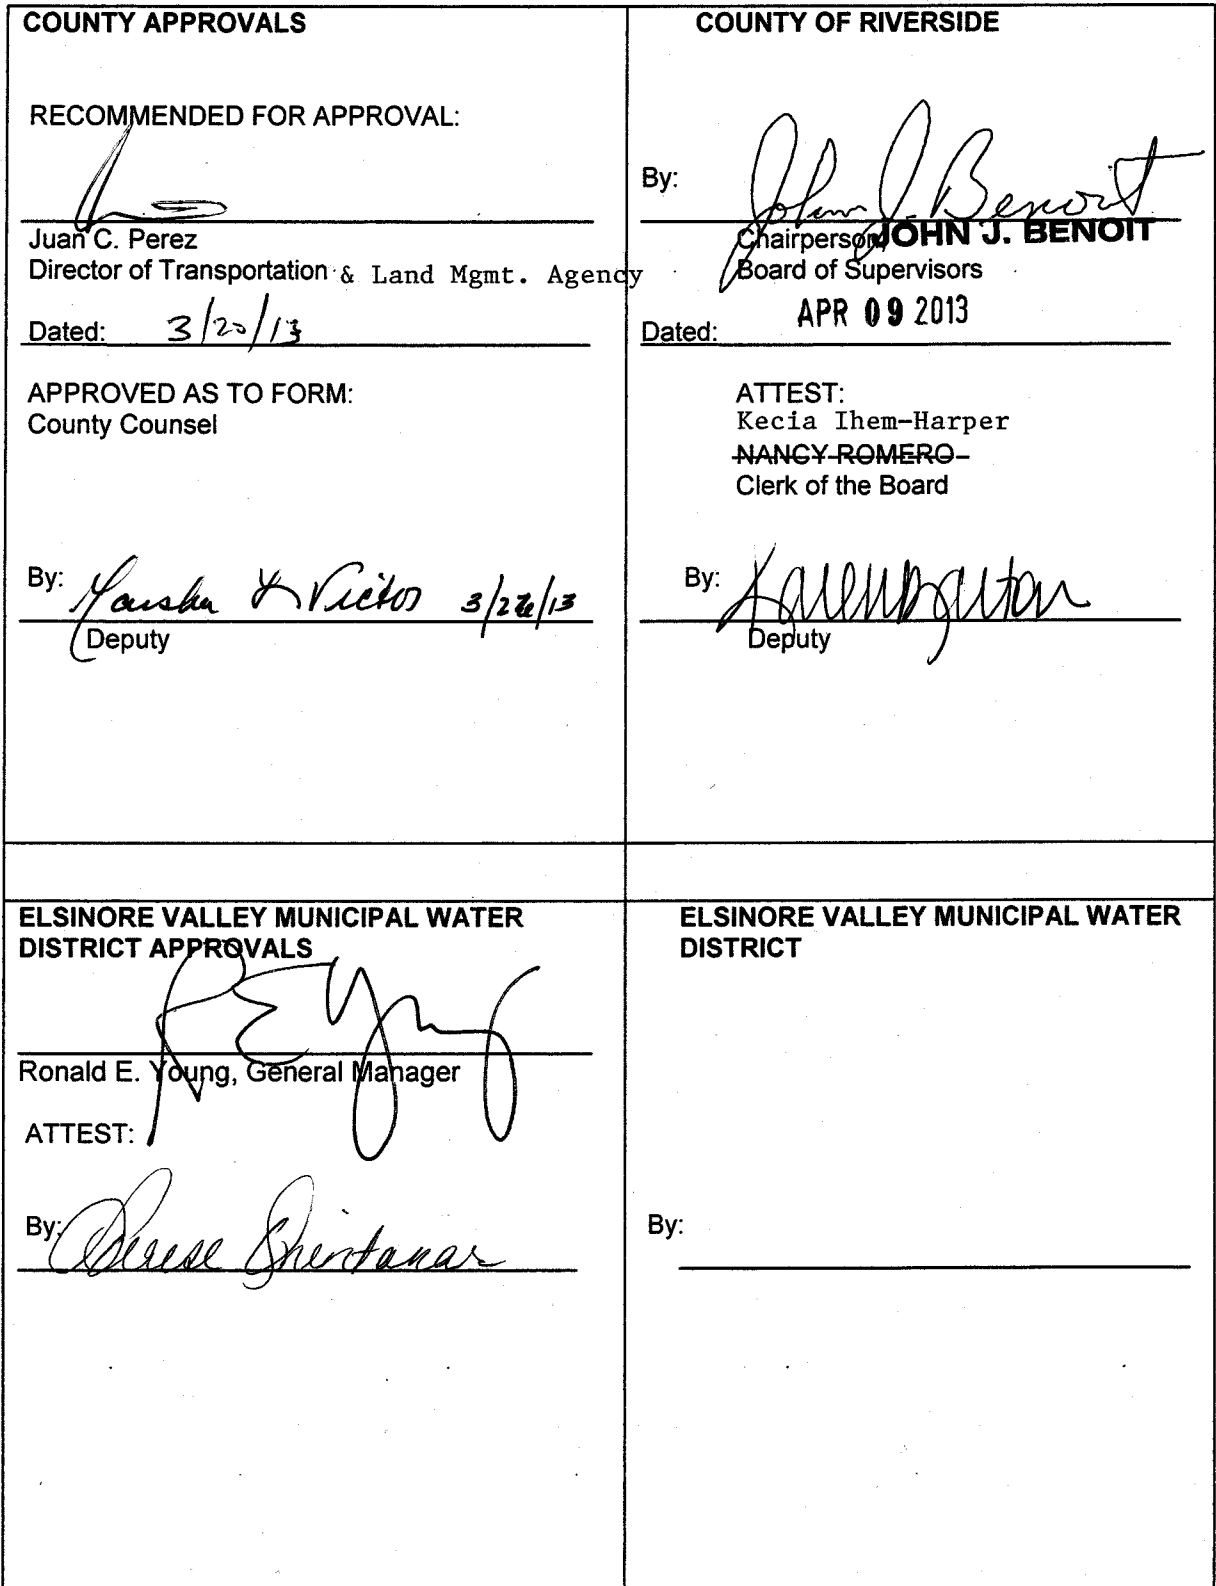 COUNTY APPROVALS
RECOMMENDED FOR APPROVAL:
Juan C. Perez
Director of Transportation & Land Mgmt. Agency
Dated: 3/20/13
APPROVED AS TO FORM:
County Counsel
By: Marsha L Victor
Deputy
COUNTY OF RIVERSIDE
By: John J Benoit
Chairperson JOHN J. BENOIT
Board of Supervisors
APR 09 2013
Dated:
ATTEST:
Kecia Ihem-Harper
NANCY ROMERO
Clerk of the Board
By:
Deputy
ELSINORE VALLEY MUNICIPAL WATER
DISTRICT APPROVALS
R E Young
Ronald E. Young, General Manager
ATTEST:
By:
ELSINORE VALLEY MUNICIPAL WATER
DISTRICT
By: